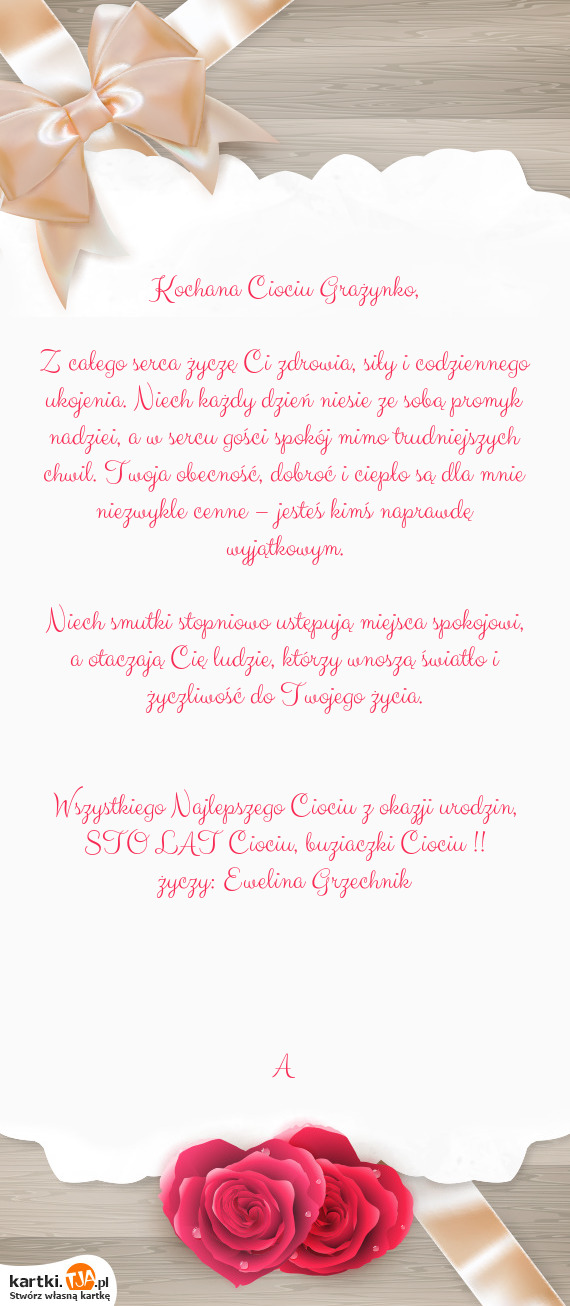 Kochana Ciociu Grażynko,
Z całego serca życzę Ci zdrowia, siły i codziennego
ukojenia. Niech każdy dzień niesie ze sobą promyk
nadziei, a w sercu gości spokój mimo trudniejszych
chwil. Twoja obecność, dobroć i ciepło są dla mnie
niezwykle cenne – jesteś kimś naprawdę
wyjątkowym.
Niech smutki stopniowo ustępują miejsca spokojowi,
a otaczają Cię ludzie, którzy wnoszą światło i
życzliwość do Twojego życia.
Wszystkiego Najlepszego Ciociu z okazji urodzin,
STO LAT Ciociu, buziaczki Ciociu !!
życzy: Ewelina Grzechnik
A
kartki.TJA.pl
Stwórz własną kartkę